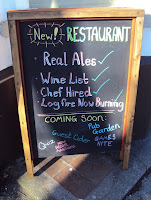 New! RESTAURANT
Real Ales ✓
Wine List ✓
Chef Hired ✓
Log fire Now Burning
COMING SOON:
Pub
Garden
Guest Cider
GAMES
NITE
Quiz